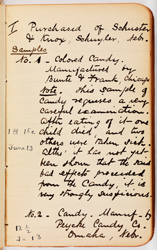 I Purchased of Schuster
& Knox Schuyler Neb.
Samples
No. 1 - Colored Candy.
Manufactured by
Bunte & Frank, Chicago
Note. This sample of
candy requires a very
careful examination.
After eating of it one
child died, and two
others were taken sick.
Altho' it has not yet
been shown that the said
bad effects proceeded
from the Candy, it is
very strongly suspicious.
No. 2 - Candy. Manuf. by
Peycke Candy Co.
Omaha, Neb.